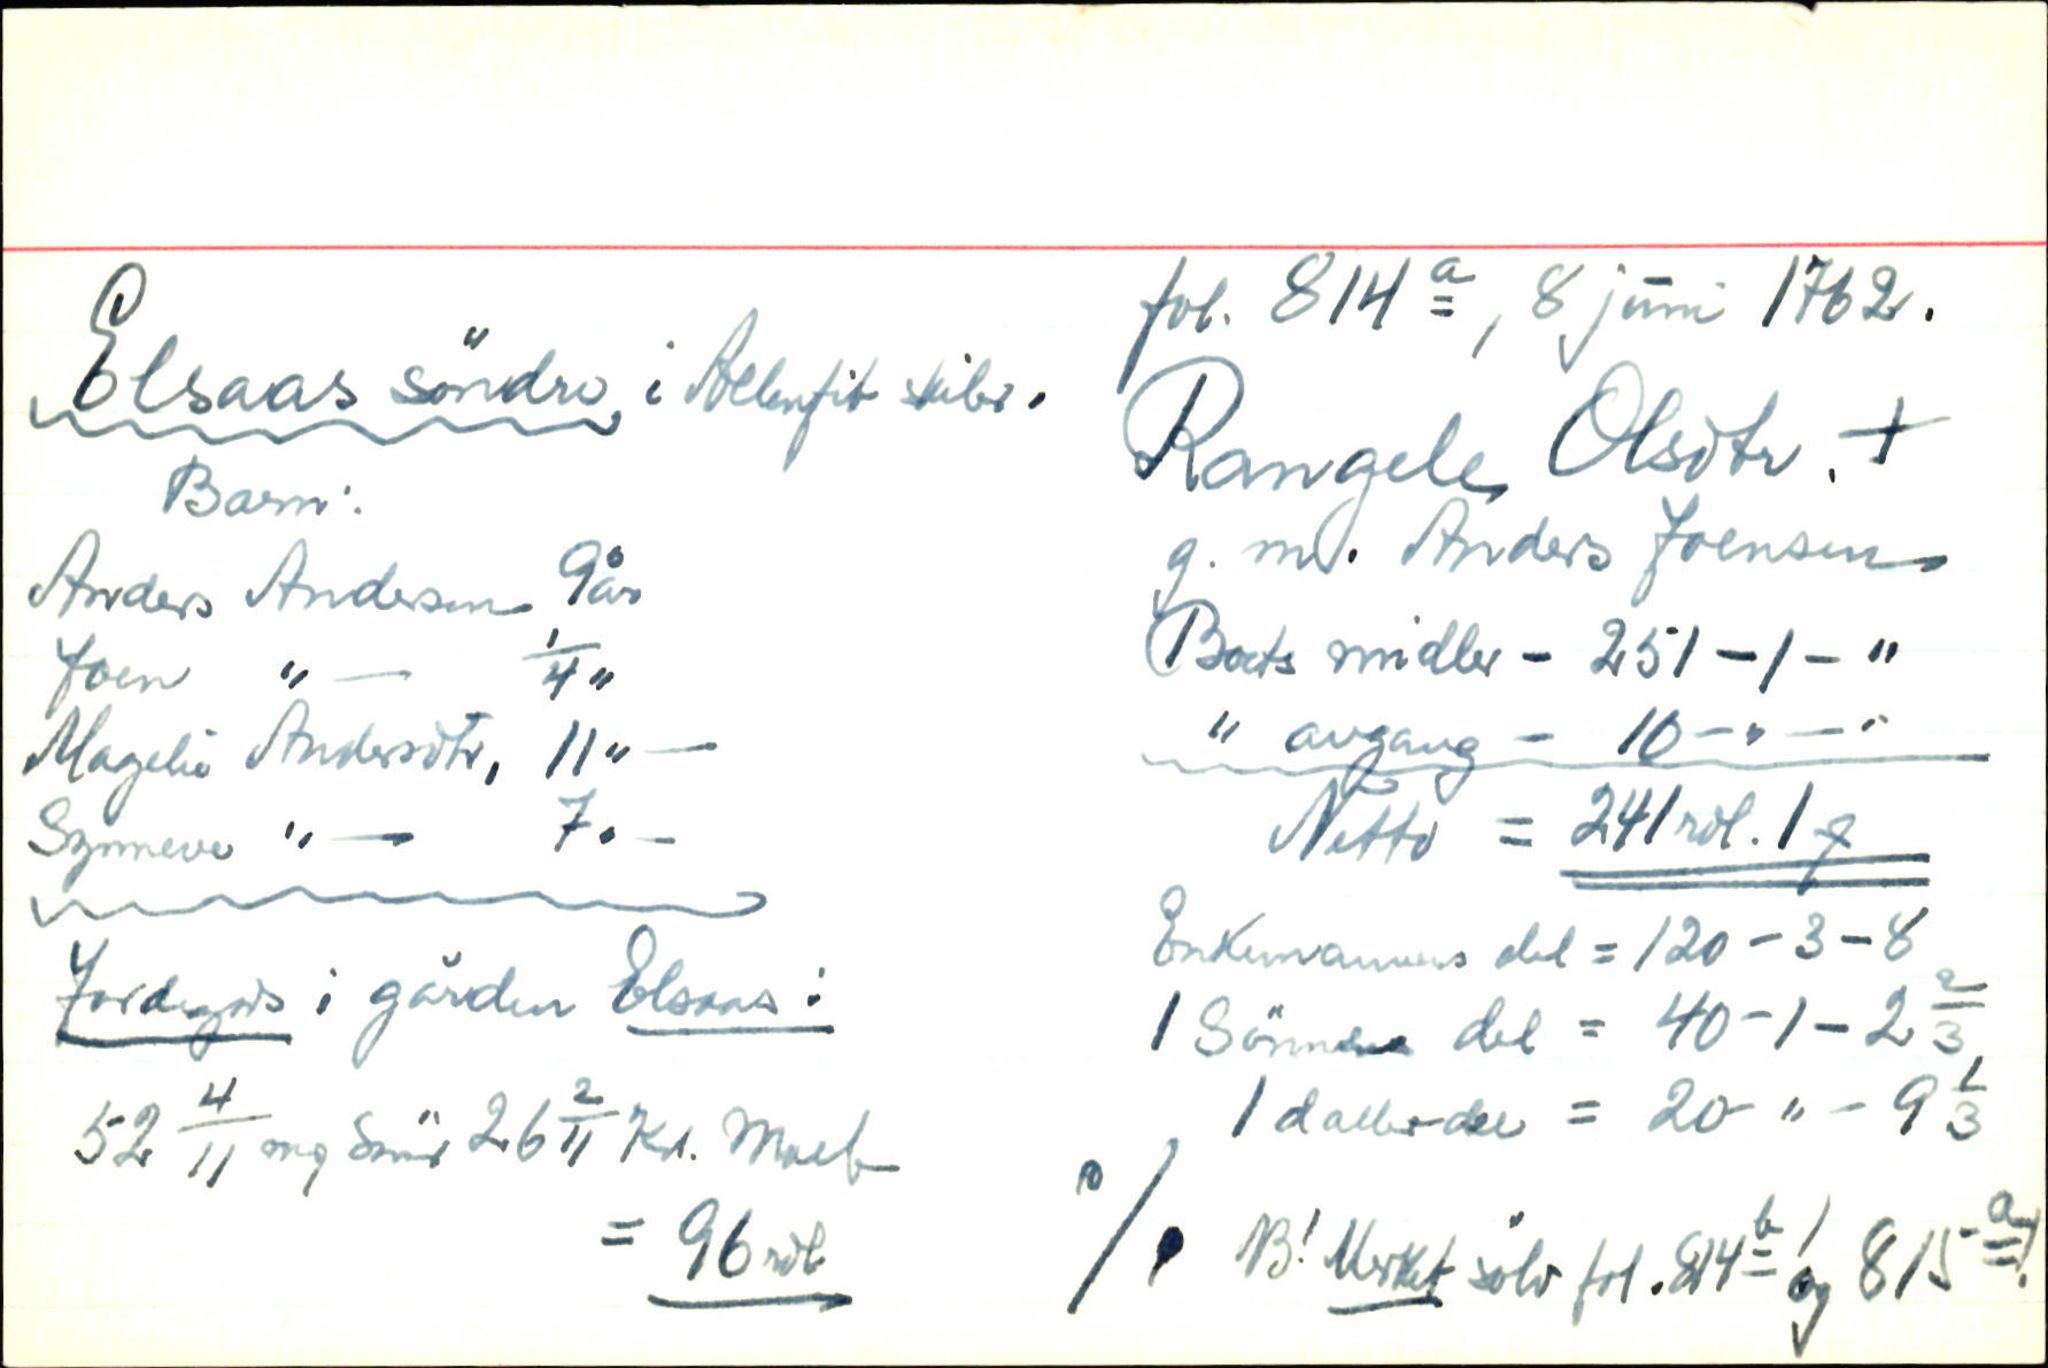 Elsaas söndre i Attenfit skibr.
Barn:
Anders Andersen 9 år
Joen " — 1/4 "
Mageli Andersdtr, 11 " —
Synneve " — 7 " —
Jordegods i gården Elsaas:
52 4/11 mg Smör 26 2/11 Kr. Malt
= 96 rdl.
fol. 814 a, 8 juni 1762.
Rangele Olsdtr. +
g. m. Anders Joensen
Boets midler - 251 - 1 - "
" avgang - 10 - " - "
Netto = 241 rdl. 1
Enkemannens del = 120 - 3 - 8
1 Sönns del = 40 - 1 - 2 2/3
1 datter del = 20 - " - 9 1/3
% NB! Merket sölv fol. 814 b! og 815 a!